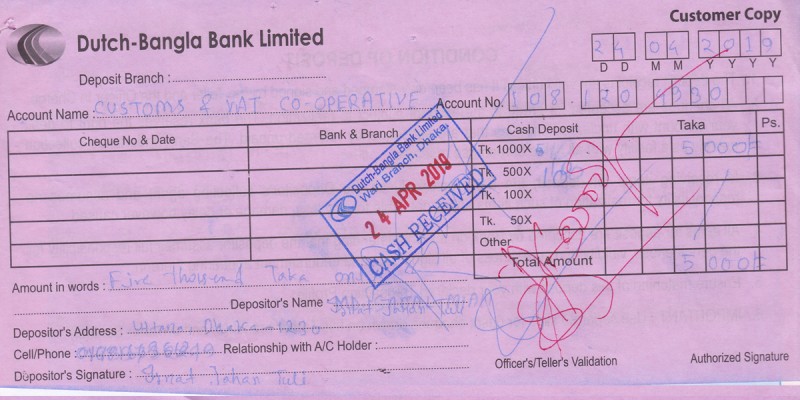 Customer Copy
Dutch-Bangla Bank Limited
24 04 2019
D D M M Y Y Y Y
Deposit Branch :
Account Name : CUSTOMS & VAT CO-OPERATIVE Account No. 108 . 120 4930
Cheque No & Date Bank & Branch Cash Deposit Taka Ps.
Tk. 1000X 5 5000/-
Tk. 500X
Tk. 100X
Tk. 50X
Other
Total Amount 5000/-
Dutch-Bangla Bank Limited
Wari Branch, Dhaka.
24 APR 2019
CASH RECEIVED
Amount in words : Five thousand Taka only
Depositor's Name : Israt Jahan Tuli
Depositor's Address : Uttara Dhaka - 1230
Cell/Phone : Relationship with A/C Holder :
Depositor's Signature : Israt Jahan Tuli
Officer's/Teller's Validation Authorized Signature